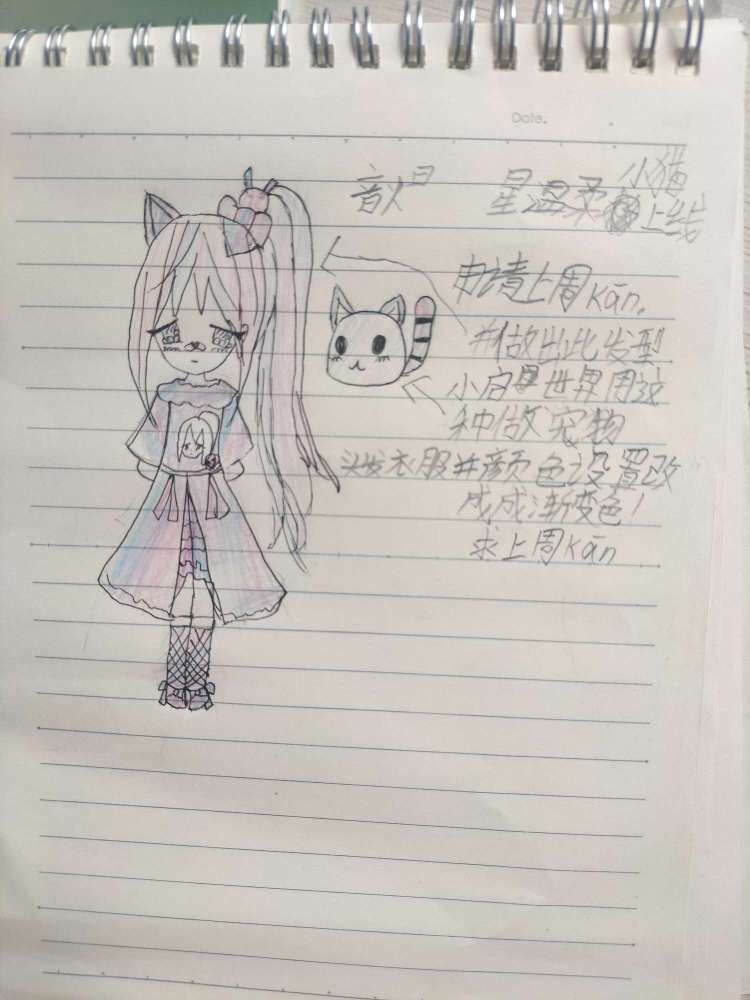 Date.
小猫
星温柔 上线
申请上周Kān,
并做出此发型
小启 世界用这
种做宠物
头发衣服并颜色设置改
成成渐变色!
求上周Kān